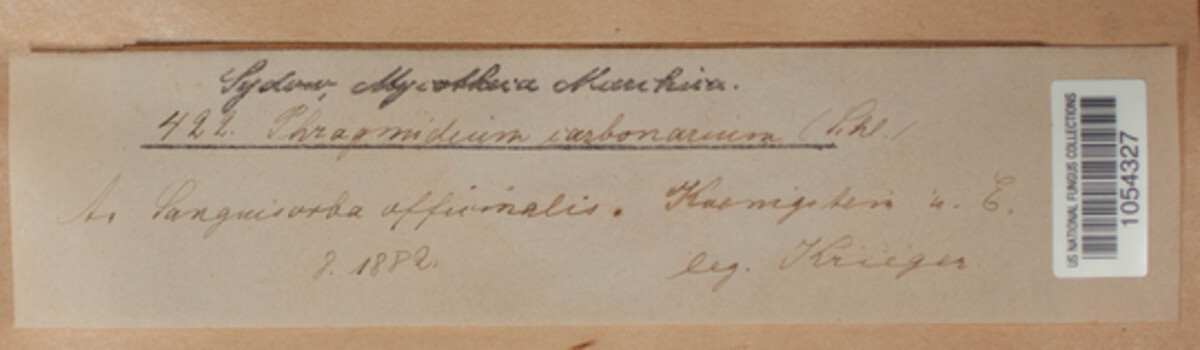 Sydow, Mycotheca Marchica.
422. Phragmidium carbonarium (Schl.)
A. Sanguisorba officinalis. Koenigstein a. E.
8. 1882. leg. Krieger
US NATIONAL FUNGUS COLLECTIONS
1054327